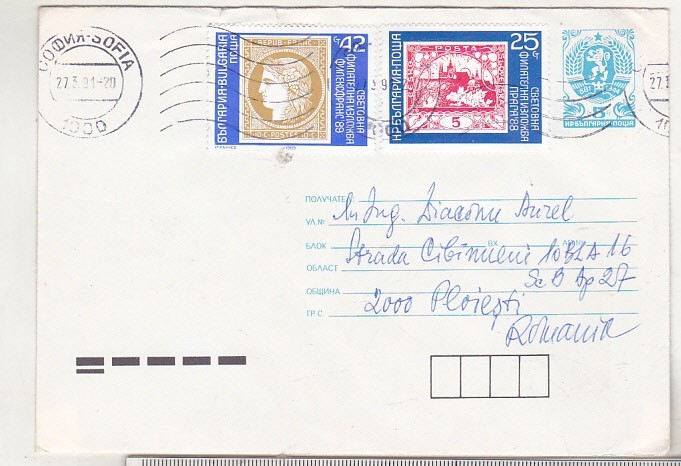 СОФИЯ-SOFIA
27.3.91-20
1000
REPUB·FRANC
БЪЛГАРИЯ·BULGARIA
ПОЩА
42 СТ
СВЕТОВНА
ФИЛАТЕЛНА ИЗЛОЖБА
ФИЛЕКСФРАНС'89
1989
POŠTA
5
НРБЪЛГАРИЯ·ПОЩА
25 СТ
СВЕТОВНА
ФИЛАТЕЛНА ИЗЛОЖБА
ПРАГА'88
681
5
НРБЪЛГАРИЯ·ПОЩА
27.3
ПОЛУЧАТЕЛ
Ing. Diaconu Aurel
УЛ.№
БЛОК ВХ АП.№
Strada Cibinului 10BLA 16
ОБЛАСТ
Sc B Ap 27
ОБЩИНА
2000 Ploiești
ГР С
Romania